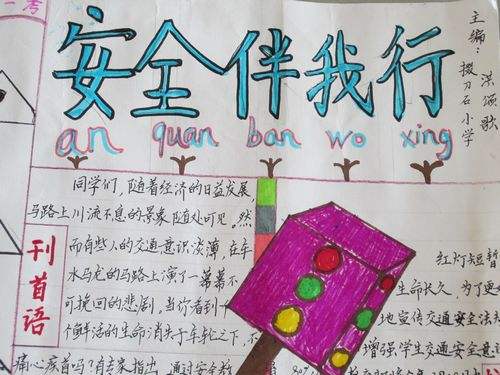 一考
安全伴我行
an quan ban wo xing
主编：洪颂歌
掇刀石小学
刊首语
同学们，随着经济的日益发展，
马路上川流不息的景象随处可见。然
而有些人的交通意识淡薄，在车
水马龙的马路上演了一幕幕不
可挽回的悲剧，当你看到一
个鲜活的生命消失于车轮之下，不
痛心疾首吗？有专家指出，通过安全教
红灯短暂
生命长久，为了更
地宣传交通安全法
增强学生交通安全意